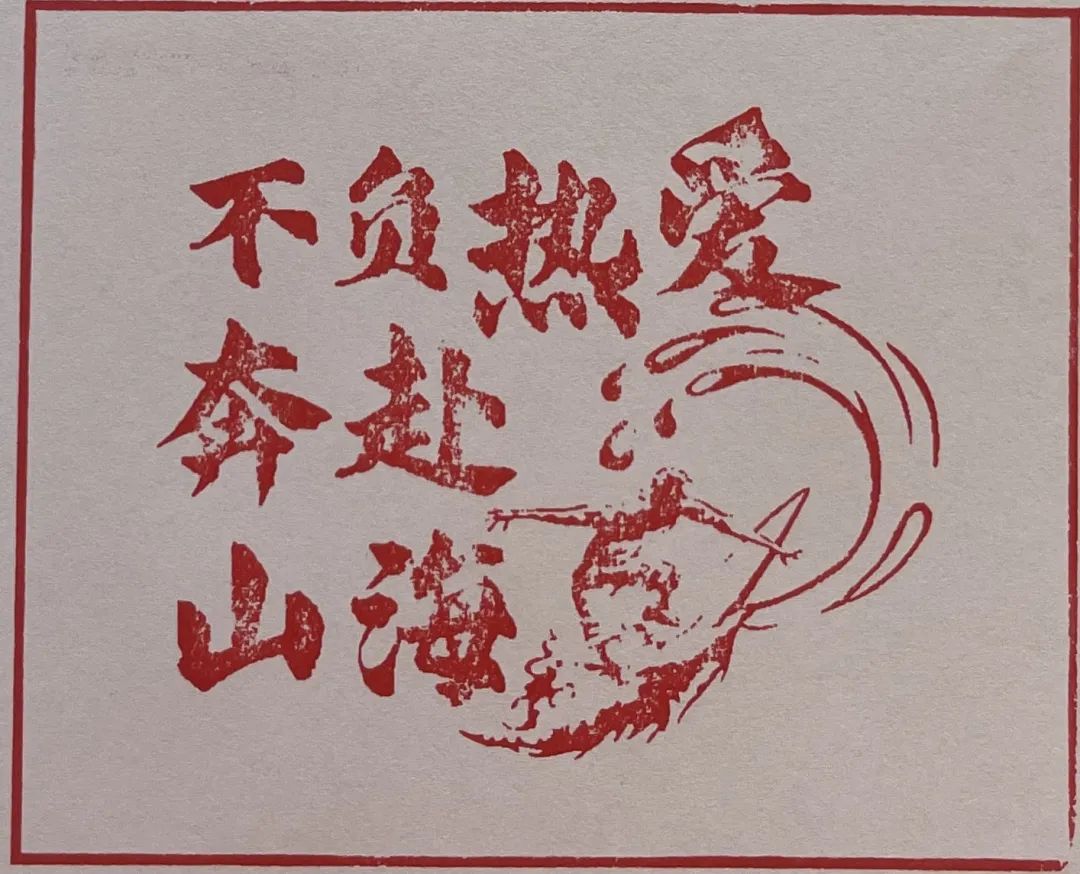 不负热爱
奔赴
山海